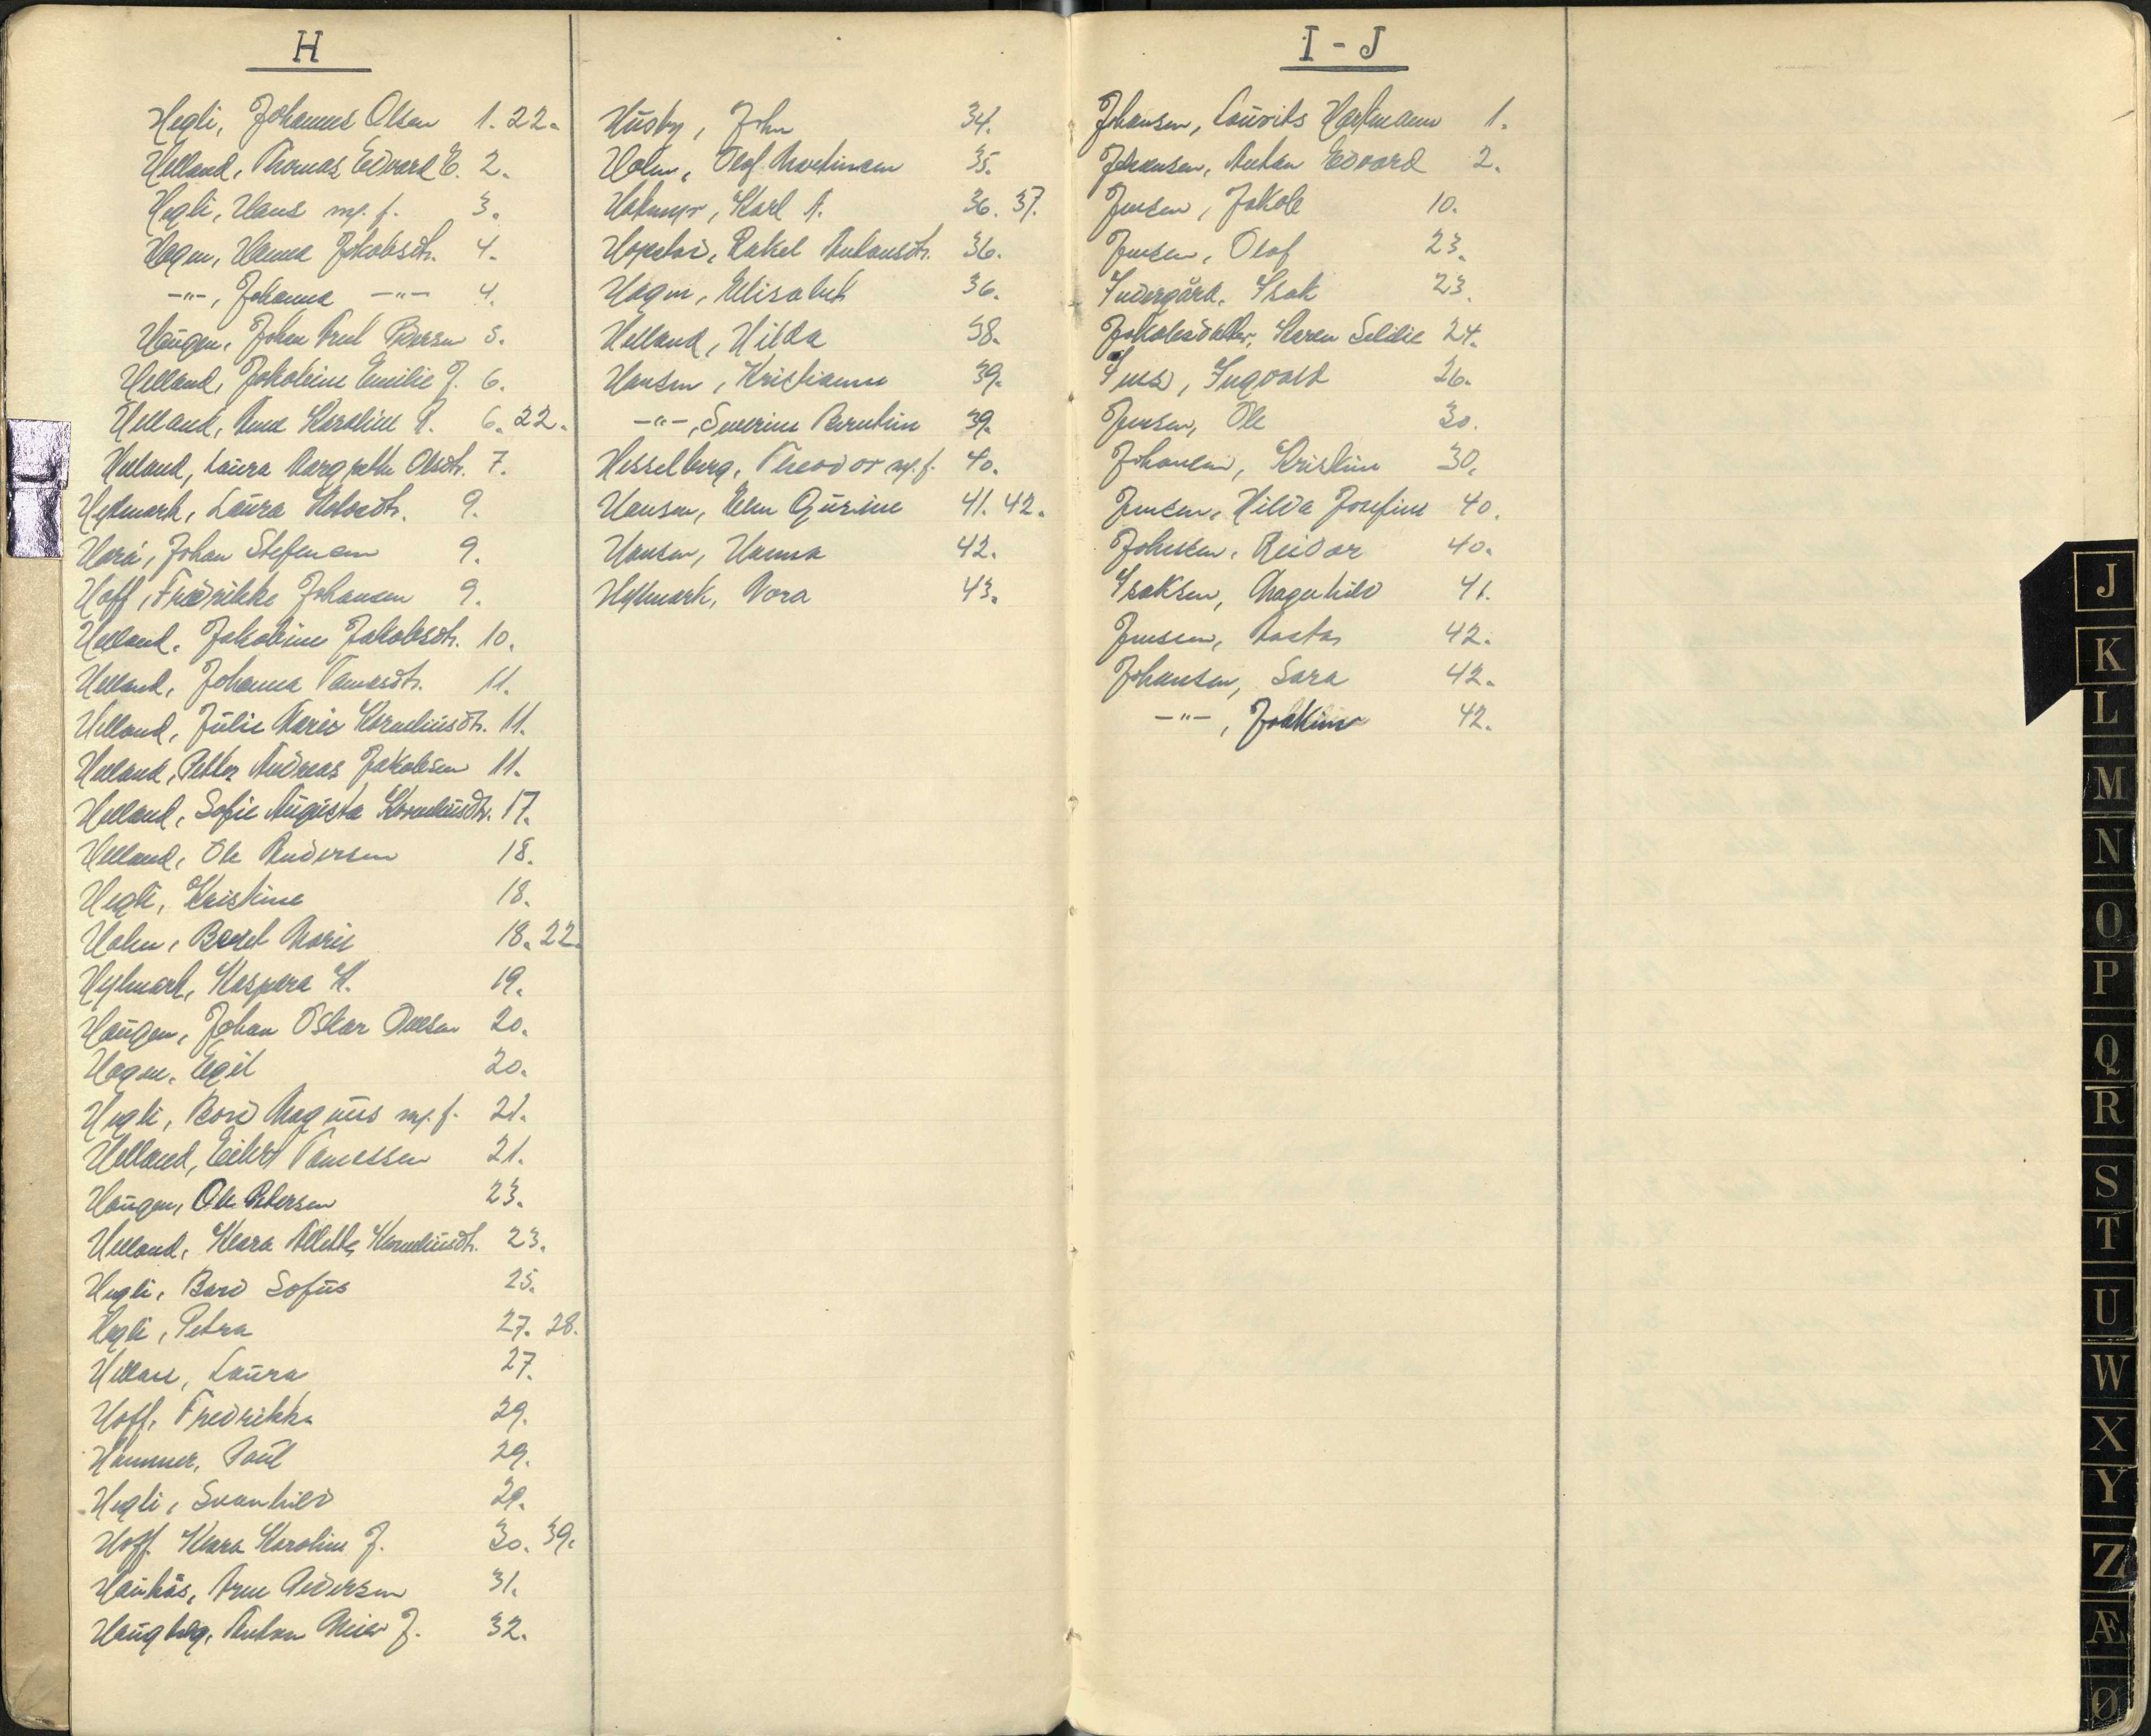 H
Hegli, Johannes Olsen 1. 22.
Helland, Thomas Edvard E. 2.
Hegli, Hans m. f. 3.
Hagen, Hanna Jakobsdtr. 4.
-"-, Johanna -"- 4.
Haugen, Johan Pedersen 5.
Helland, Jakobine Emilie J. 6.
Helland, Anna Karoline A. 6. 22.
Helland, Laura Margrethe Olsdtr. 7.
Hejlmark, Laura 9.
Hara, Johan Stefensen 9.
Hoff, Fredrikke Johansen 9.
Helland, Jakobine Jakobsdtr. 10.
Helland, Johanna Tomasdtr. 11.
Helland, Julie Marie Korneliusdtr. 11.
Helland, Petter Andreas Jakobsen 11.
Helland, Sofie Augusta Korneliusdtr. 17.
Helland, Ole Andersen 18.
Hegli, Kristine 18.
Holm, Beret Marie 18. 22.
Hejlmark, Kaspara K. 19.
Haugen, Johan Oskar Olsen 20.
Hagen, Egil 20.
Hegli, Bård Magnus m. f. 21.
Helland, Eilert Tomassen 21.
Haugen, Ole Petersen 23.
Helland, Klara Alette Korneliusdtr. 23.
Hegli, Bård Sofus 25.
Hegli, Petra 27. 28.
Laura 27.
Hoff, Fredrikke 29.
Hammer, Paul 29.
Hegli, Svanhild 29.
Hoff, Klara Karoline J. 30. 39.
Haukås, Arne Pedersen 31.
Haugberg, Anton Meier J. 32.
Husby, John 34.
Holm, Olaf Martinsen 35.
Karl A. 36. 37.
Hopstad, Rakel Antonsdtr. 36.
Hagen, Elisabet 36.
Helland, Hilda 38.
Hansen, Kristianne 39.
-"-, Severine Berntine 39.
Hesselberg, Theodor m. f. 40.
Hansen, Elen Gurine 41. 42.
Hansen, Hanna 42.
Hejlmark, Nora 43.
I - J
Johansen, Laurits Hartmann 1.
Johansen, Anton Edvard 2.
Jensen, Jakob 10.
Jensen, Olaf 23.
Indergård, Isak 23.
Jakobsdatter, Karen Selilie 24.
Ingvald 26.
Jensen, Ole 30.
Johansen, Kristine 30.
Jensen, Hilda Josefine 40.
Johnsen, Reidar 40.
Isaksen, Magnhild 41.
Jenssen, Aasta 42.
Johansen, Sara 42.
-"-, Joakim 42.
J
K
L
M
N
O
P
Q
R
S
T
U
W
X
Y
Z
Æ
Ø